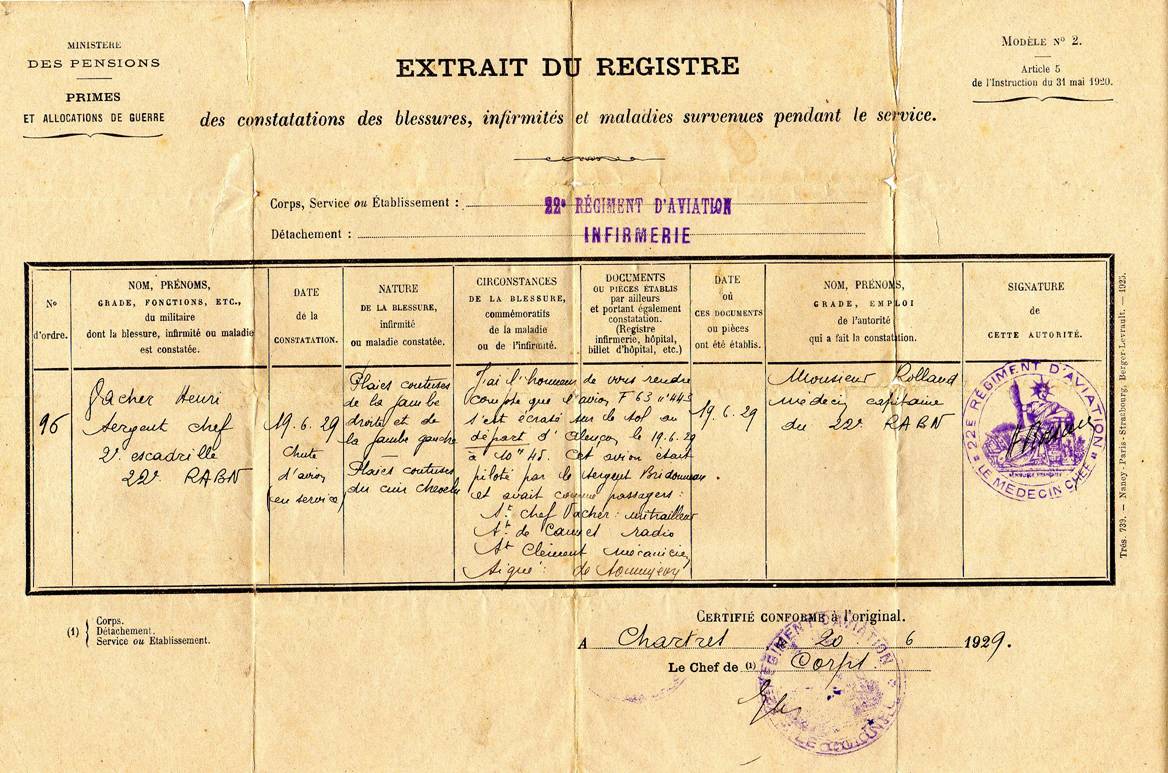 MINISTERE
DES PENSIONS
PRIMES
ET ALLOCATIONS DE GUERRE
EXTRAIT DU REGISTRE
des constatations des blessures, infirmités et maladies survenues pendant le service.
MODÈLE N° 2.
Article 5
de l'Instruction du 31 mai 1920.
Corps, Service ou Établissement :
22e RÉGIMENT D'AVIATION
Détachement :
INFIRMERIE
N°
d'ordre.
NOM, PRÉNOMS,
GRADE, FONCTIONS, ETC.,
du militaire
dont la blessure, infirmité ou maladie
est constatée.
DATE
de la
CONSTATATION.
NATURE
DE LA BLESSURE,
infirmité
ou maladie constatée.
CIRCONSTANCES
DE LA BLESSURE,
commémoratifs
de la maladie
ou de l'infirmité.
DOCUMENTS
OU PIÈCES ÉTABLIS
par ailleurs
et portant également
constatation.
(Registre
infirmerie, hôpital,
billet d'hôpital, etc.)
DATE
où
CES DOCUMENTS
ou pièces
ont été établis.
NOM, PRÉNOMS,
GRADE, EMPLOI
de l'autorité
qui a fait la constatation.
SIGNATURE
de
CETTE AUTORITÉ.
96
Vacher Henri
Sergent chef
2e escadrille
22e RABN
19.6.29
Chute
d'avion
(en service)
Plaies contuses
de la jambe
droite et de
la jambe gauche
Plaies contuses
du cuir chevelu
J'ai l'honneur de vous rendre
compte que l'avion F 63 n° 443
s'est écrasé sur le sol au
départ d'Alençon le 19.6.29
à 10h45. Cet avion était
piloté par le sergent
et avait comme passagers :
St chef Vacher : mitrailleur
St de radio
St Clément mécanicien
Signé : de
19.6.29
Monsieur Rolland
médecin capitaine
du 22e RABN
22E RÉGIMENT D'AVIATION
LE MÉDECIN CHEF
Trés. 739. — Nancy-Paris-Strasbourg, Berger-Levrault. — 1925.
(1) Corps.
Détachement.
Service ou Établissement.
CERTIFIÉ CONFORME à l'original.
A Chartres 20 6 1929.
Le Chef de (1) Corps.
RÉGIMENT D'AVIATION
LE COLONEL